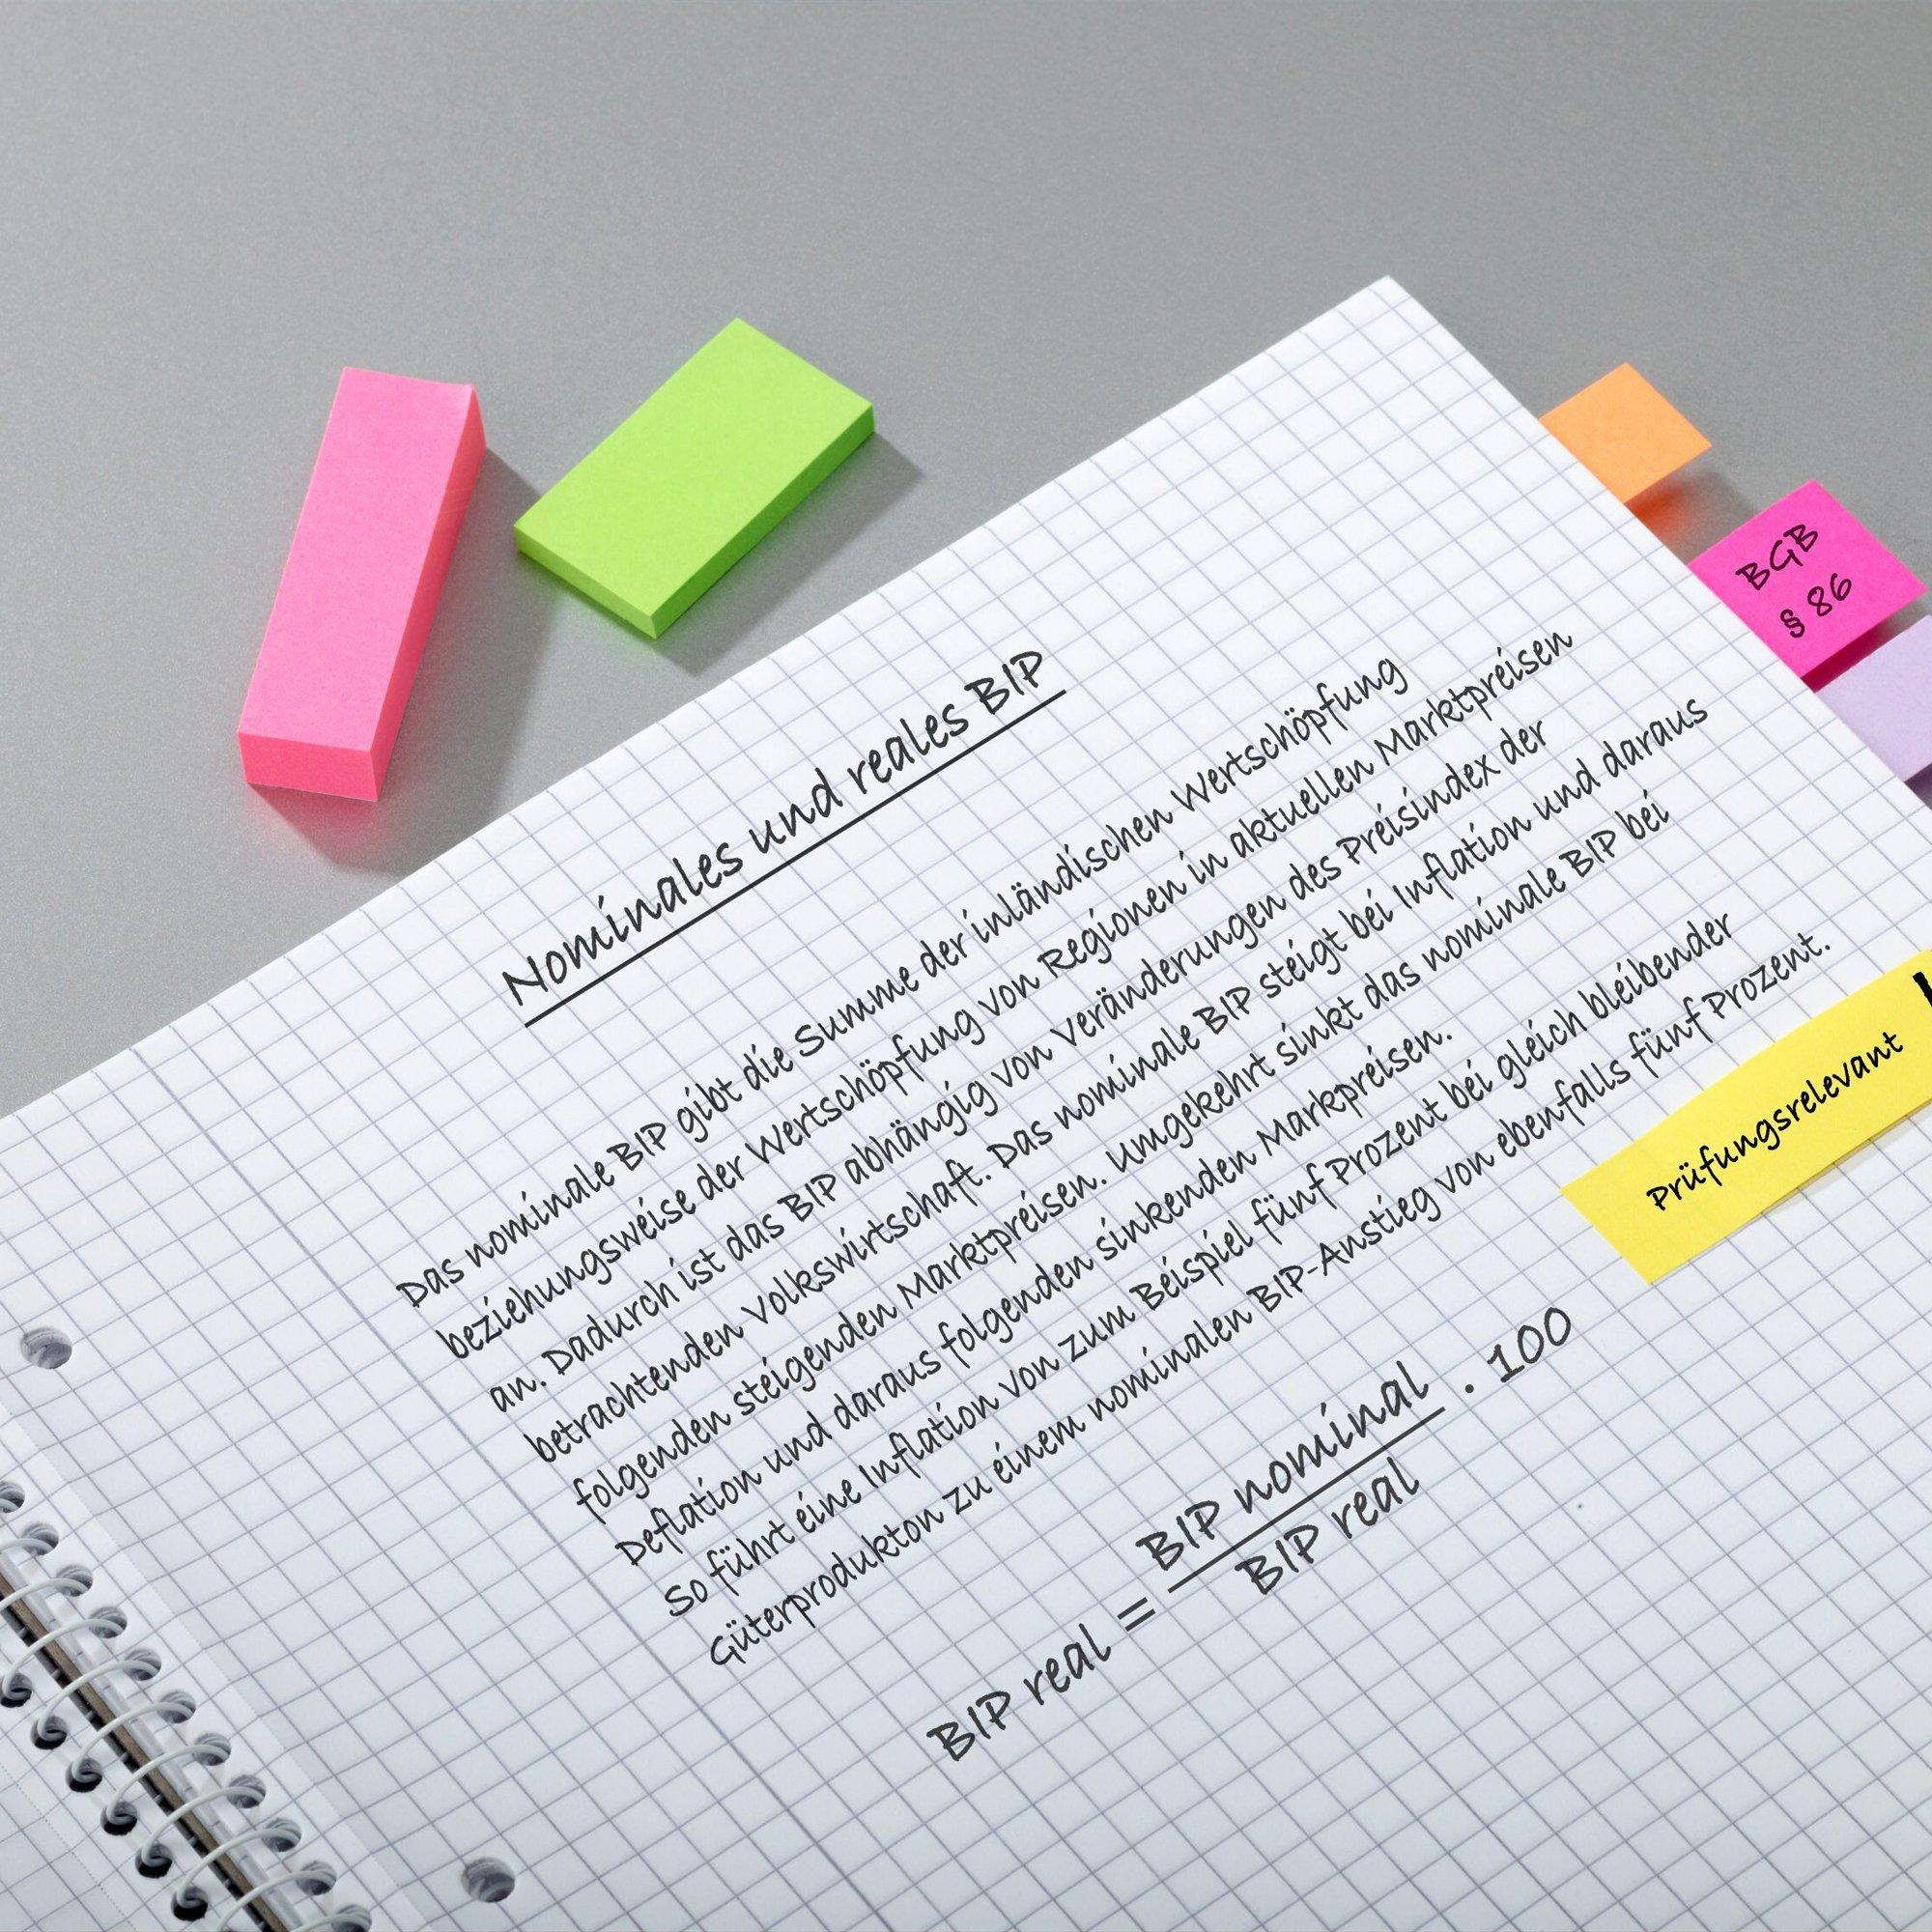 Nominales und reales BIP
Das nominale BIP gibt die Summe der inländischen Wertschöpfung
beziehungsweise der Wertschöpfung von Regionen in aktuellen Marktpreisen
an. Dadurch ist das BIP abhängig von Veränderungen des Preisindex der
betrachtenden Volkswirtschaft. Das nominale BIP steigt bei Inflation und daraus
folgenden steigenden Marktpreisen. Umgekehrt sinkt das nominale BIP bei
Deflation und daraus folgenden sinkenden Markpreisen.
So führt eine Inflation von zum Beispiel fünf Prozent bei gleich bleibender
Güterprodukton zu einem nominalen BIP-Anstieg von ebenfalls fünf Prozent.
BIP real = BIP nominal / BIP real . 100
BGB
§ 86
Prüfungsrelevant